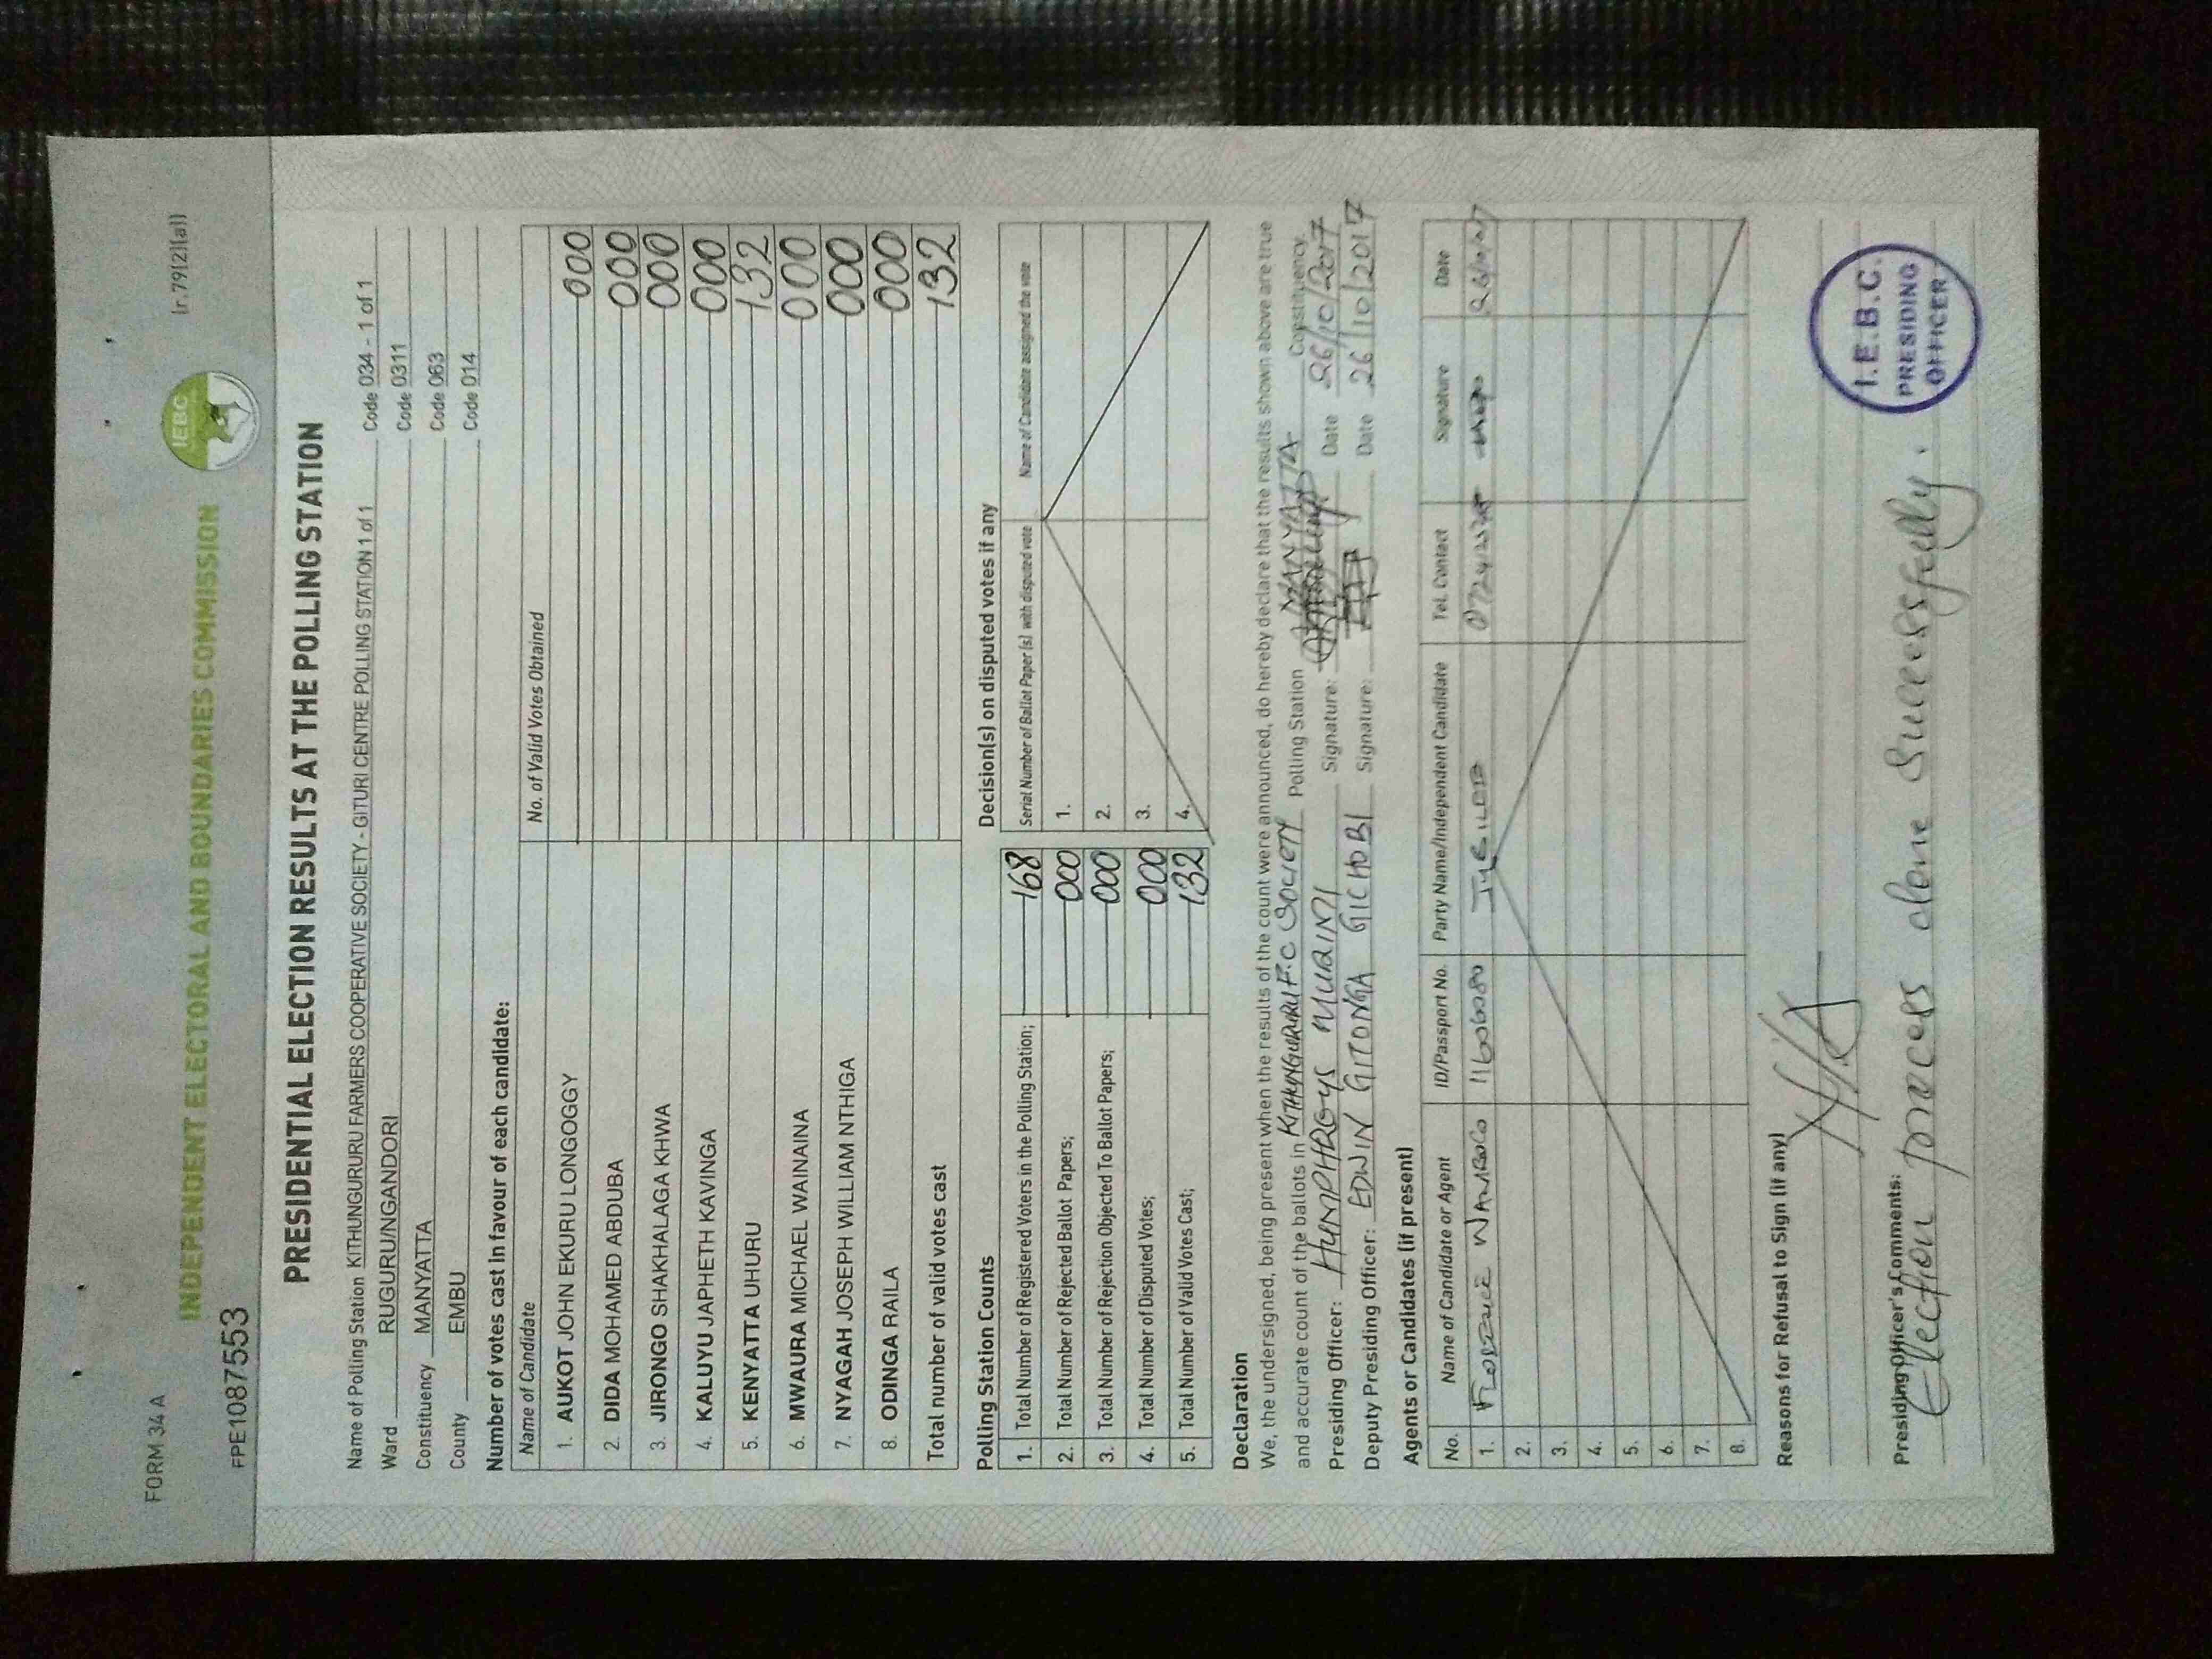 FORM 34 A
(r.79(2)(a))
IEBC
INDEPENDENT ELECTORAL AND BOUNDARIES COMMISSION
FPE1087553
PRESIDENTIAL ELECTION RESULTS AT THE POLLING STATION
Name of Polling Station KITHUNGURURU FARMERS COOPERATIVE SOCIETY - GITURI CENTRE POLLING STATION 1 of 1 Code 034 - 1 of 1
Ward RUGURU/NGANDORI Code 0311
Constituency MANYATTA Code 063
County EMBU Code 014
Number of votes cast in favour of each candidate:
Name of Candidate No. of Valid Votes Obtained
1. AUKOT JOHN EKURU LONGOGGY 000
2. DIDA MOHAMED ABDUBA 000
3. JIRONGO SHAKHALAGA KHWA 000
4. KALUYU JAPHETH KAVINGA 000
5. KENYATTA UHURU 132
6. MWAURA MICHAEL WAINAINA 000
7. NYAGAH JOSEPH WILLIAM NTHIGA 000
8. ODINGA RAILA 000
Total number of valid votes cast 132
Polling Station Counts
1. Total Number of Registered Voters in the Polling Station; 168
2. Total Number of Rejected Ballot Papers; 000
3. Total Number of Rejection Objected To Ballot Papers; 000
4. Total Number of Disputed Votes; 000
5. Total Number of Valid Votes Cast; 132
Decision(s) on disputed votes if any
Serial Number of Ballot Paper (s) with disputed vote Name of Candidate assigned the vote
1.
2.
3.
4.
Declaration
We, the undersigned, being present when the results of the count were announced, do hereby declare that the results shown above are true
and accurate count of the ballots in KITHUNGURURU F.C SOCIETY Polling Station MANYATTA Constituency.
Presiding Officer: HUMPHROYS MURIMI Signature: Date 26/10/2017
Deputy Presiding Officer: EDWIN GITONGA GICHOBI Signature: Date 26/10/2017
Agents or Candidates (if present)
No. Name of Candidate or Agent ID/Passport No. Party Name/Independent Candidate Tel. Contact Signature Date
1. 11606080
2.
3.
4.
5.
6.
7.
8.
Reasons for Refusal to Sign (if any)
N/A
Presiding Officer's Comments:
Election process done Successfully.
I.E.B.C.
PRESIDING
OFFICER